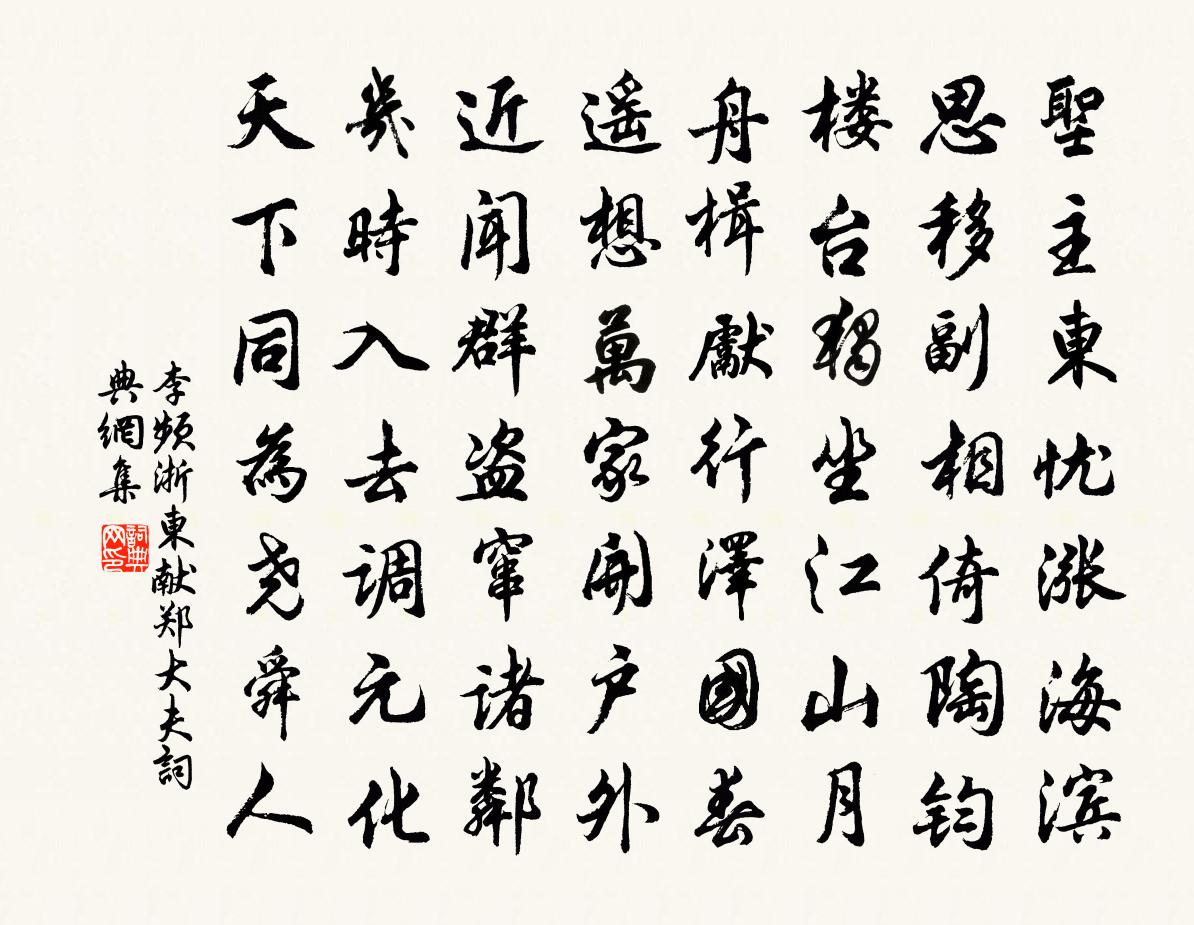 聖主東忧漲海滨
思移副相倚陶钧
楼台獨坐江山月
舟楫獻行澤國春
遥想萬家開户外
近闻群盗窜诸鄰
幾時入去调元化
天下同為尧舜人
李频浙東献郑大夫詞
典網集
詞典网印